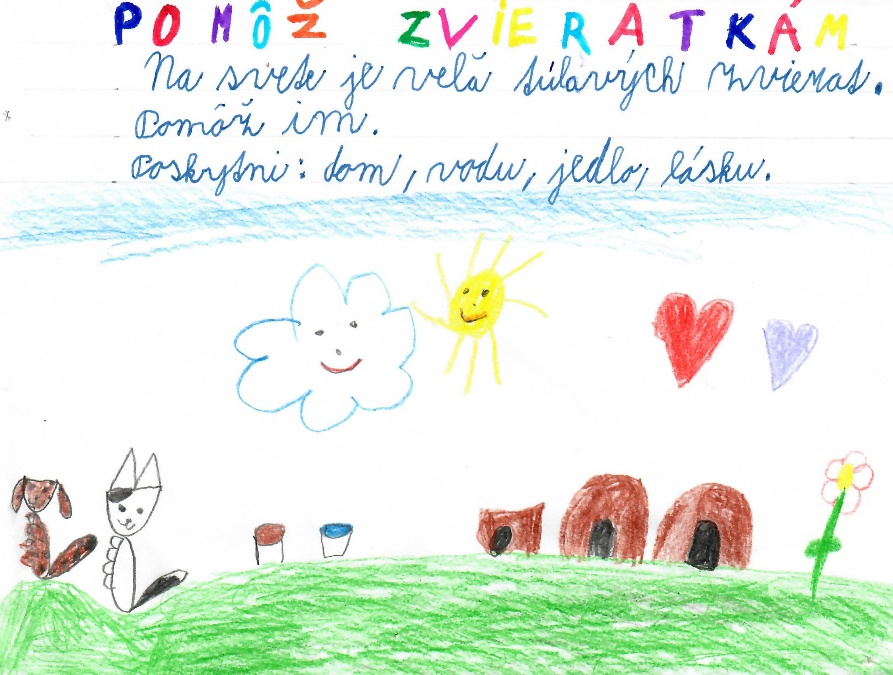 POMÔŽ ZVIERATKÁM
Na svete je veľa túlavých zvierat.
Pomôž im.
Poskytni: dom, vodu, jedlo, lásku.